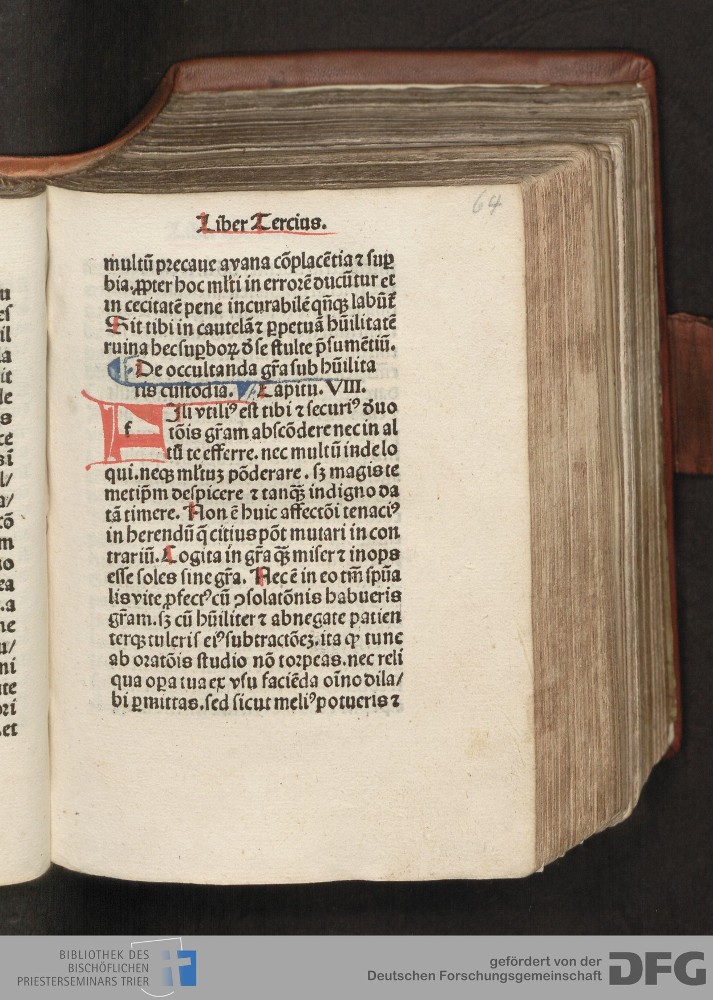 64
Liber Tercius.
multū precaue a vana cōplacētia ⁊ suꝑ
bia. ꝓpter hoc ml̄ti in errorē ducūtur et
in cecitatē pene incurabilē qn̄qꝫ labūt̄
Sit tibi in cautelā ⁊ ꝑpetuā hūilitatē
ruina hec suꝑboꝝ d̄ se stulte p̄sumētiū.
De occultanda gr̄a sub hūilita
tis custodia. Capitu. VIII.
f
Ili vtiliꝰ est tibi ⁊ securiꝰ duo
tōis gr̄am abscōdere nec in al
tū te efferre. nec multū inde lo
qui. neqꝫ ml̄tuꝫ pōderare. sꝫ magis te
metip̄m despicere ⁊ tanqꝫ̄ indigno da
tā timere. Non ē huic affectōi tenaciꝰ
in herendū q̄ citius pōt mutari in con
trariū. Cogita in gr̄a qꝫ̄ miser ⁊ inops
esse soles sine gr̄a. Nec ē in eo tm̄ sp̄ua
lis vite ꝓfectꝰ cū ꝯsolatōnis habueris
gr̄am. sꝫ cū hūiliter ⁊ abnegate patien
terqꝫ tuleris eiꝰ subtractōeꝫ. ita ꝙ tunc
ab oratōis studio nō torpeas. nec reli
qua oꝑa tua ex vsu faciēda oīno dila/
bi ꝑmittas. sed sicut meliꝰ potueris ⁊
BIBLIOTHEK DES
BISCHÖFLICHEN
PRIESTERSEMINARS TRIER
gefördert von der
Deutschen Forschungsgemeinschaft
DFG